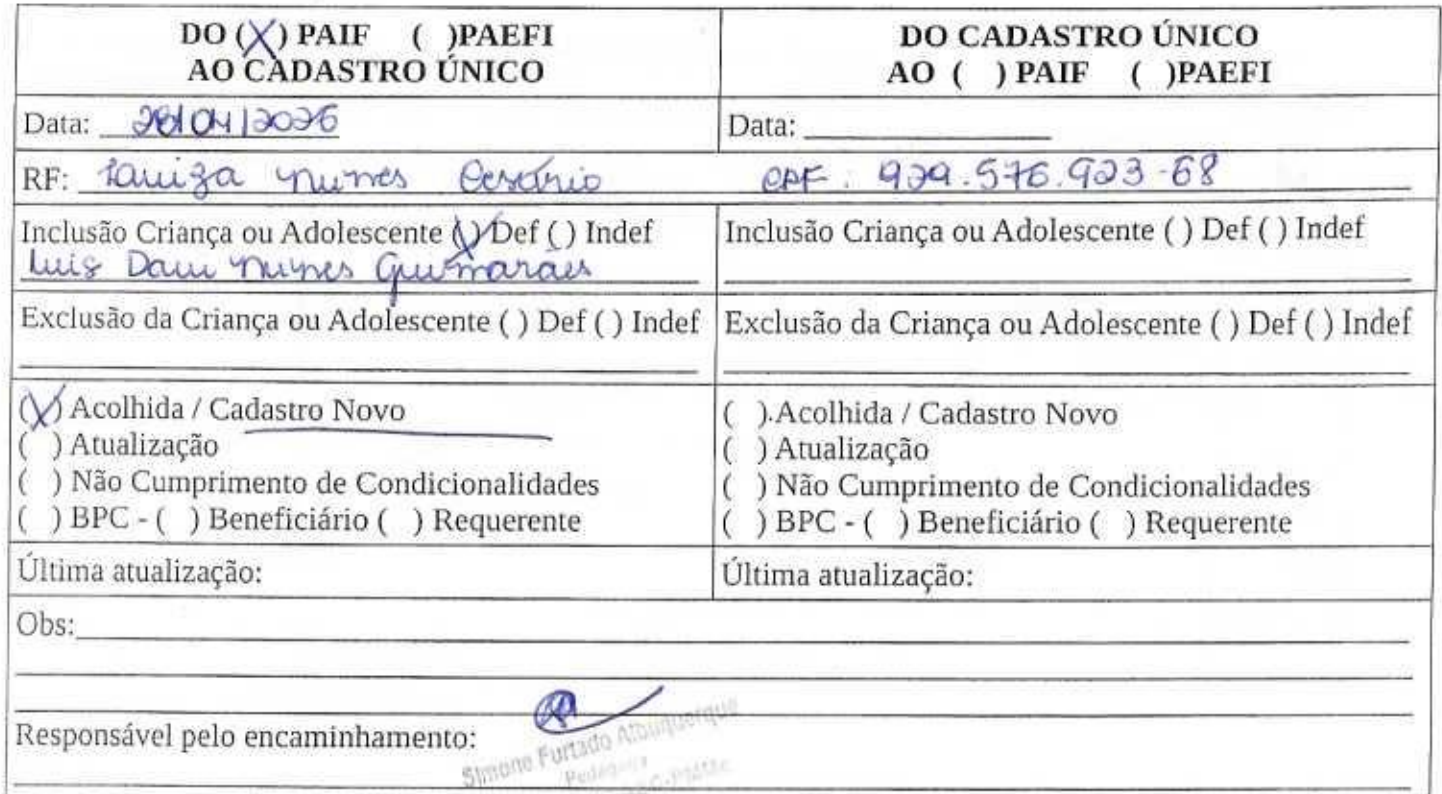 DO (X) PAIF ( )PAEFI
AO CADASTRO ÚNICO
DO CADASTRO ÚNICO
AO ( ) PAIF ( )PAEFI
Data: 28/04/2026
Data:
RF: Taniza Nunes Cesário CPF. 929.576.923-68
Inclusão Criança ou Adolescente (X) Def ( ) Indef
Luis Davi Nunes Guimarães
Inclusão Criança ou Adolescente ( ) Def ( ) Indef
Exclusão da Criança ou Adolescente ( ) Def ( ) Indef
Exclusão da Criança ou Adolescente ( ) Def ( ) Indef
(X) Acolhida / Cadastro Novo
( ) Atualização
( ) Não Cumprimento de Condicionalidades
( ) BPC - ( ) Beneficiário ( ) Requerente
( ).Acolhida / Cadastro Novo
( ) Atualização
( ) Não Cumprimento de Condicionalidades
( ) BPC - ( ) Beneficiário ( ) Requerente
Última atualização:
Última atualização:
Obs:
Responsável pelo encaminhamento:
Simone Furtado Albuquerque
Pedagoga